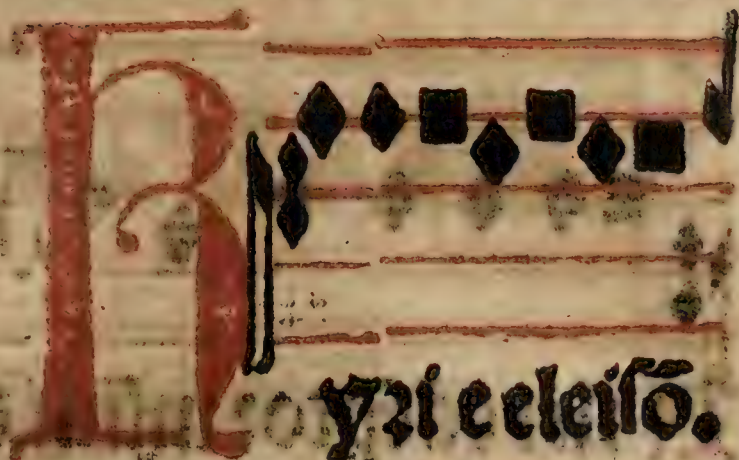 Kyrieeleisō.